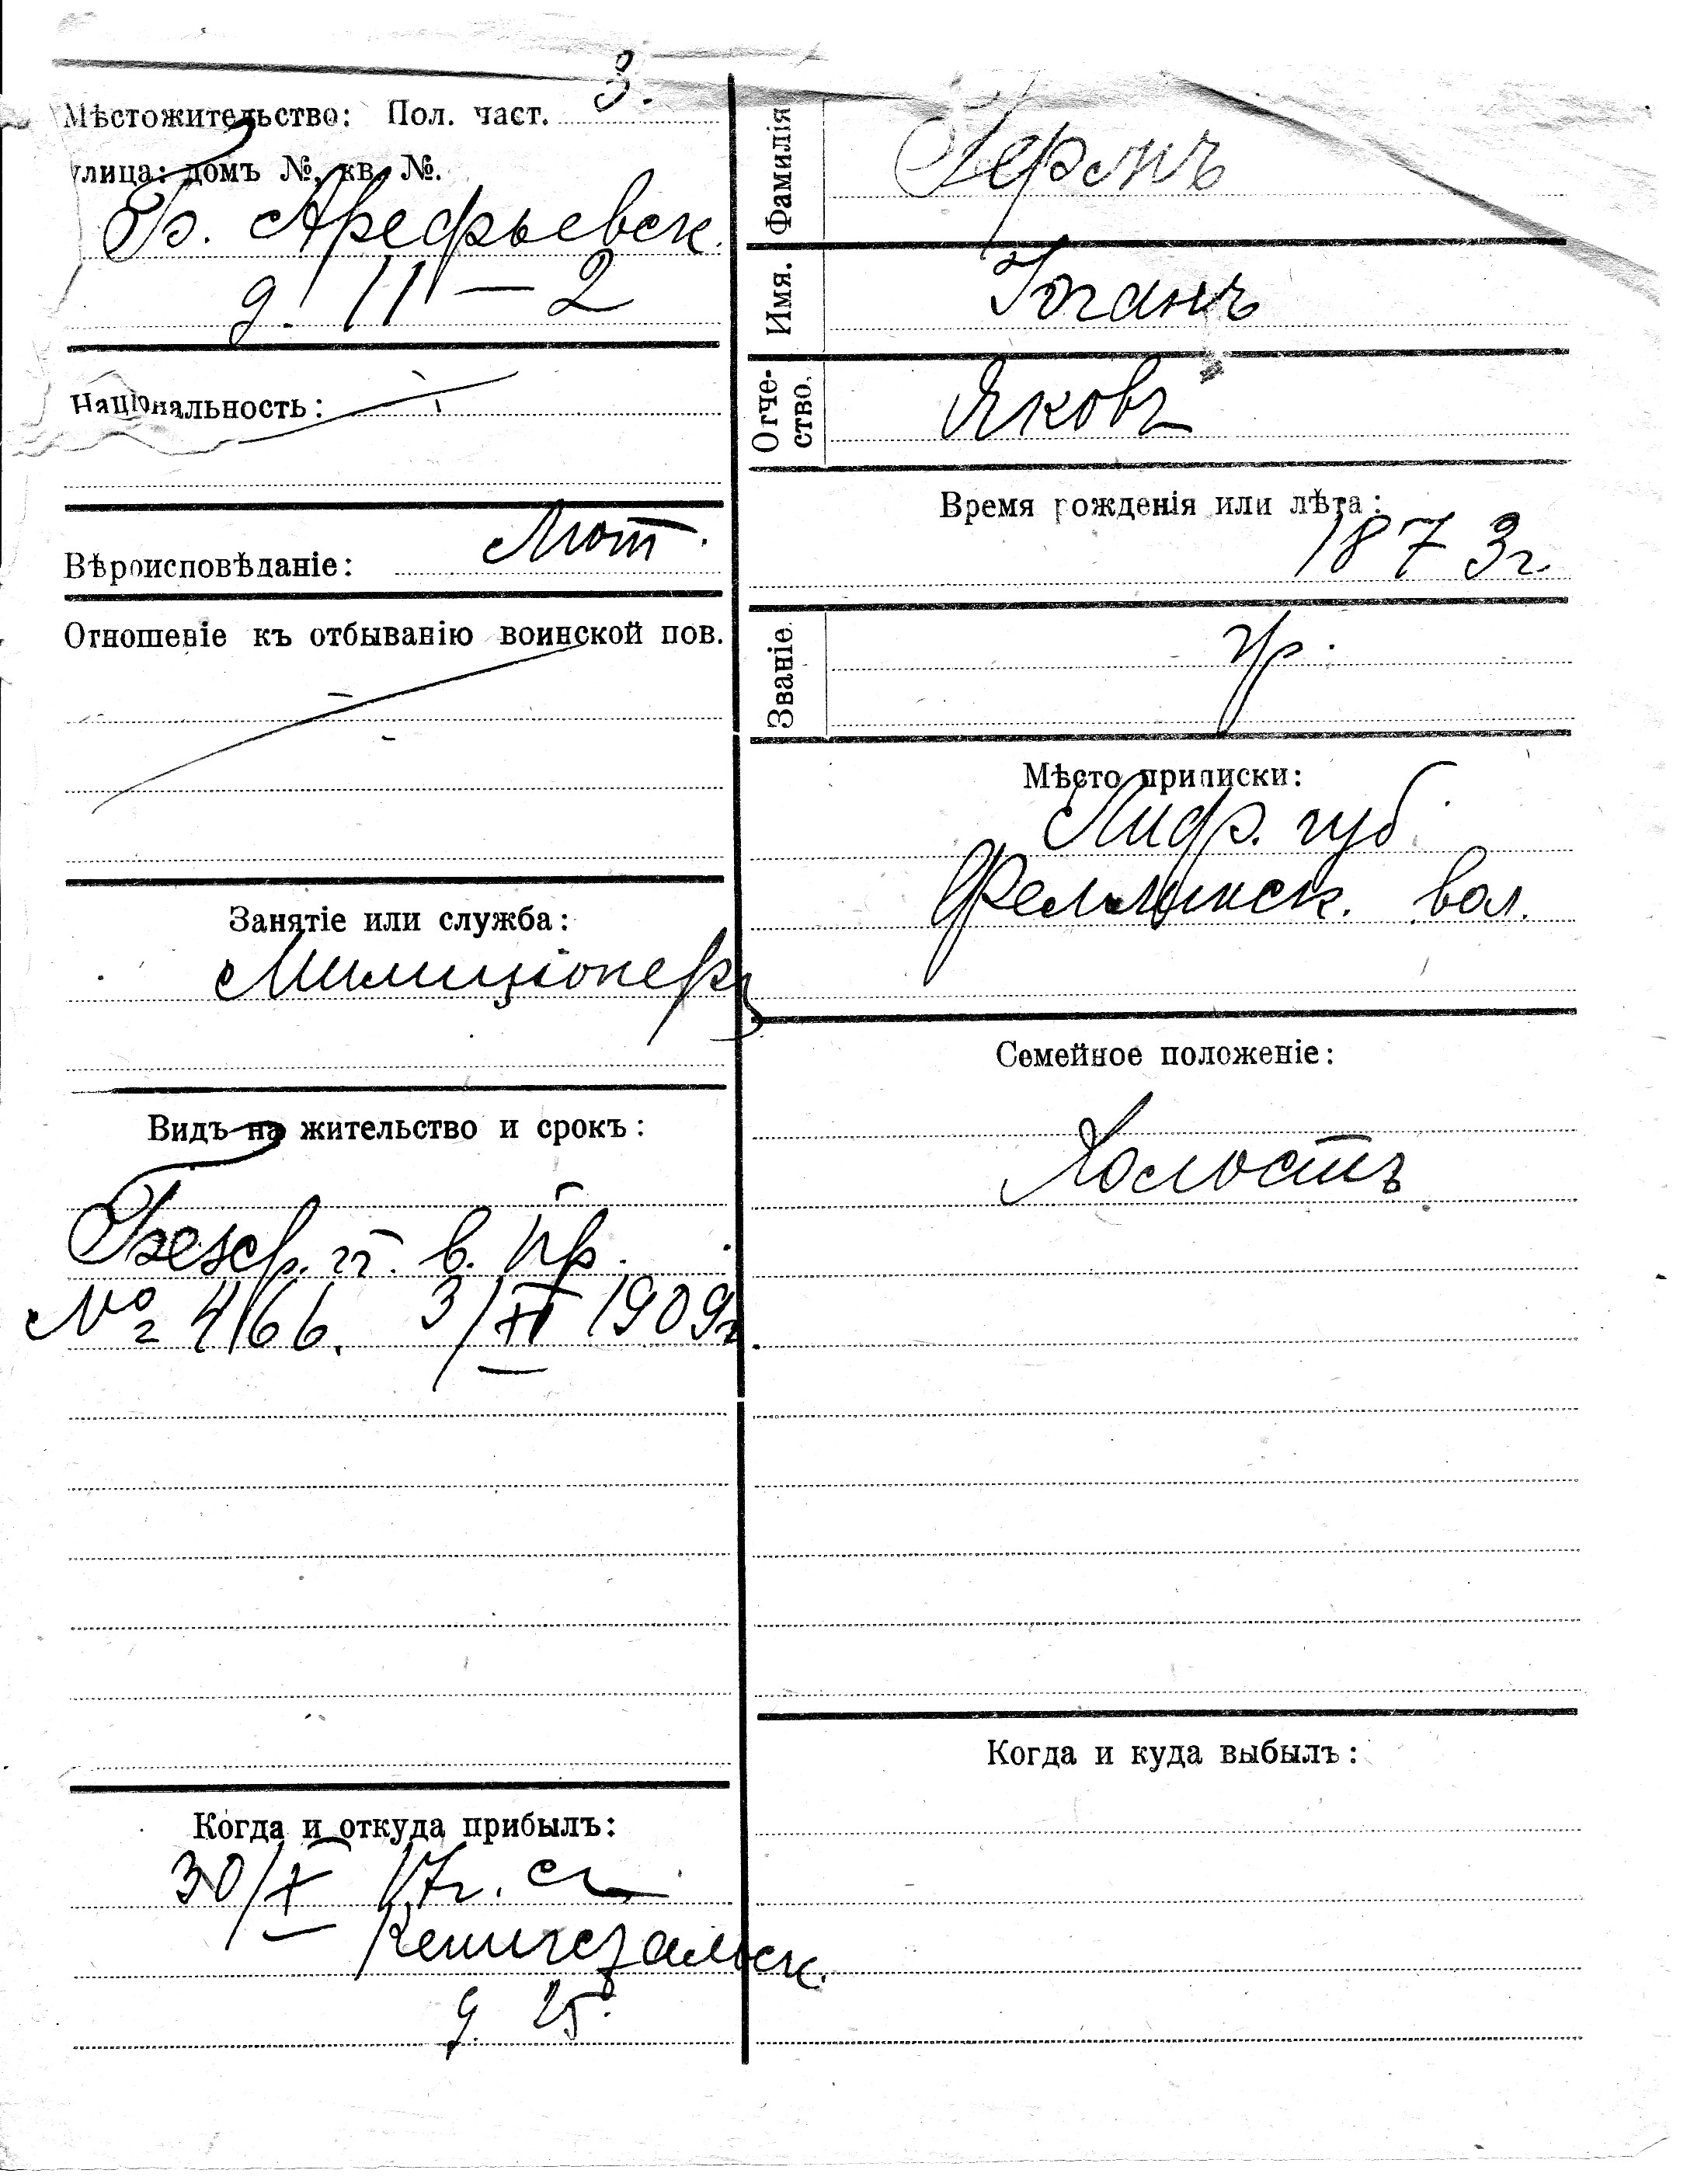 Мѣстожительство: Пол. част. 3.
улица: домъ №, кв. №.
Б. Арефьевск.
д. 11 — 2
Національность:
Вѣроисповѣданіе: Лют.
Отношеніе къ отбыванію воинской пов.
Занятіе или служба:
Милиціонеръ
Видъ на жительство и срокъ:
Безср. п. в. пр.
№ 4166. 3/XI 1909г.
Когда и откуда прибылъ:
30/X 17г. съ
Кенигсзальск.
д. 25.
Фамилія
Имя. Іоганъ
Отче-
ство. Яковъ
Время рожденія или лѣта:
1873г.
Званіе. гр.
Мѣсто приписки:
Лифл. губ.
Феллинск. вол.
Семейное положеніе:
Холостъ
Когда и куда выбылъ: